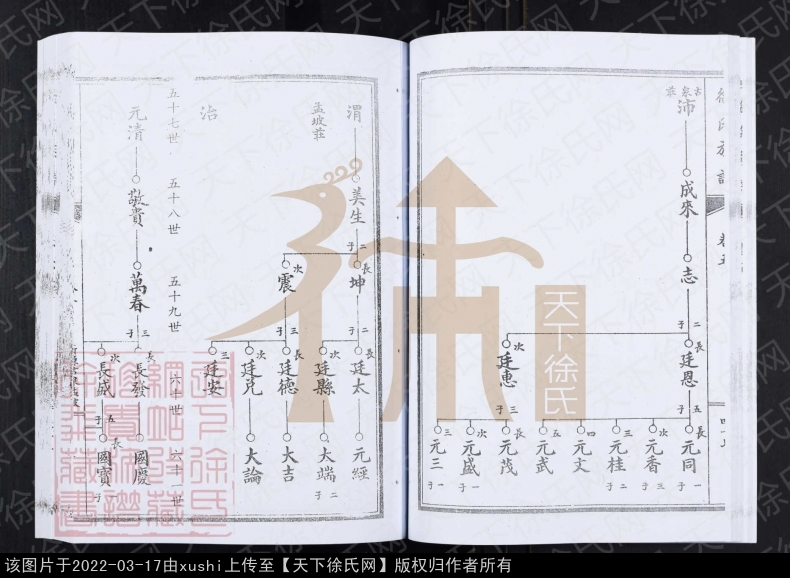 徐氏族譜
卷五
古泉莊
沛
成來
志
二子
長 廷恩
次 廷惠
五子
三子
長 元同 一子
次 元香 二子
三 元桂 二子
四 元文
五 元武
長 元茂
次 元盛 一子
三 元三 一子
渭
孟坡莊
美生
二子
長 坤
次 震
二子
三子
長 廷太
次 廷縣
長 廷德
次 廷兌
三 廷安
元經
大端 二子
大吉
大論
治
五十七世
五十八世
五十九世
六十世
六十一世
元清
敬貴
萬春
三子
長 長發
次 長盛
五子
國慶
長 國寶
天下徐氏
该图片于2022-03-17由xushi上传至【天下徐氏网】版权归作者所有